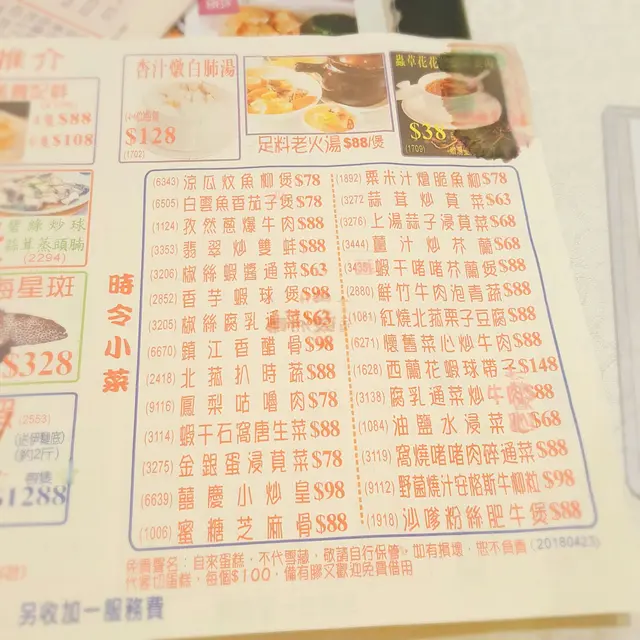 推介
$88
$108
杏汁燉白肺湯
$128
(1702)
足料老火湯 $88/煲
蟲草花花
$38
(1709)
(2294)
海星斑
$328
(2553)
(送伊麵底)
(約2斤)
$1288
時令小菜
(6343) 涼瓜炆魚柳煲 $78
(6505) 白雲魚香茄子煲 $78
(1124) 孜然蔥爆牛肉 $88
(3353) 翡翠炒雙蚌 $88
(3206) 椒絲蝦醬通菜 $63
(2852) 香芋蝦球煲 $98
(3205) 椒絲腐乳通菜 $63
(6670) 鎮江香醋骨 $98
(2418) 北菇扒時蔬 $88
(9116) 鳳梨咕嚕肉 $78
(3114) 蝦干石窩唐生菜 $88
(3275) 金銀蛋浸莧菜 $78
(6639) 囍慶小炒皇 $98
(1006) 蜜糖芝麻骨 $88
(1892) 粟米汁燴脆魚柳 $78
(3272) 蒜茸炒莧菜 $63
(3276) 上湯蒜子浸莧菜 $68
(3444) 薑汁炒芥蘭 $68
蝦干啫啫芥蘭煲 $88
(2880) 鮮竹牛肉泡青蔬 $88
(1081) 紅燒北菇栗子豆腐 $88
(6271) 懷舊菜心炒牛肉 $88
(1628) 西蘭花蝦球帶子 $148
(3138) 腐乳通菜炒牛肉 $88
(1084) 油鹽水浸菜心 $68
(3119) 窩燒啫啫肉碎通菜 $88
(9112) 野菌燒汁安格斯牛柳粒 $98
(1918) 沙嗲粉絲肥牛煲 $88
免責聲名：自來蛋糕，不代雪藏，敬請自行保管。如有損壞，恕不負責 (20180423)
代客切蛋糕，每個$100，備有腳叉歡迎免費借用
另收加一服務費